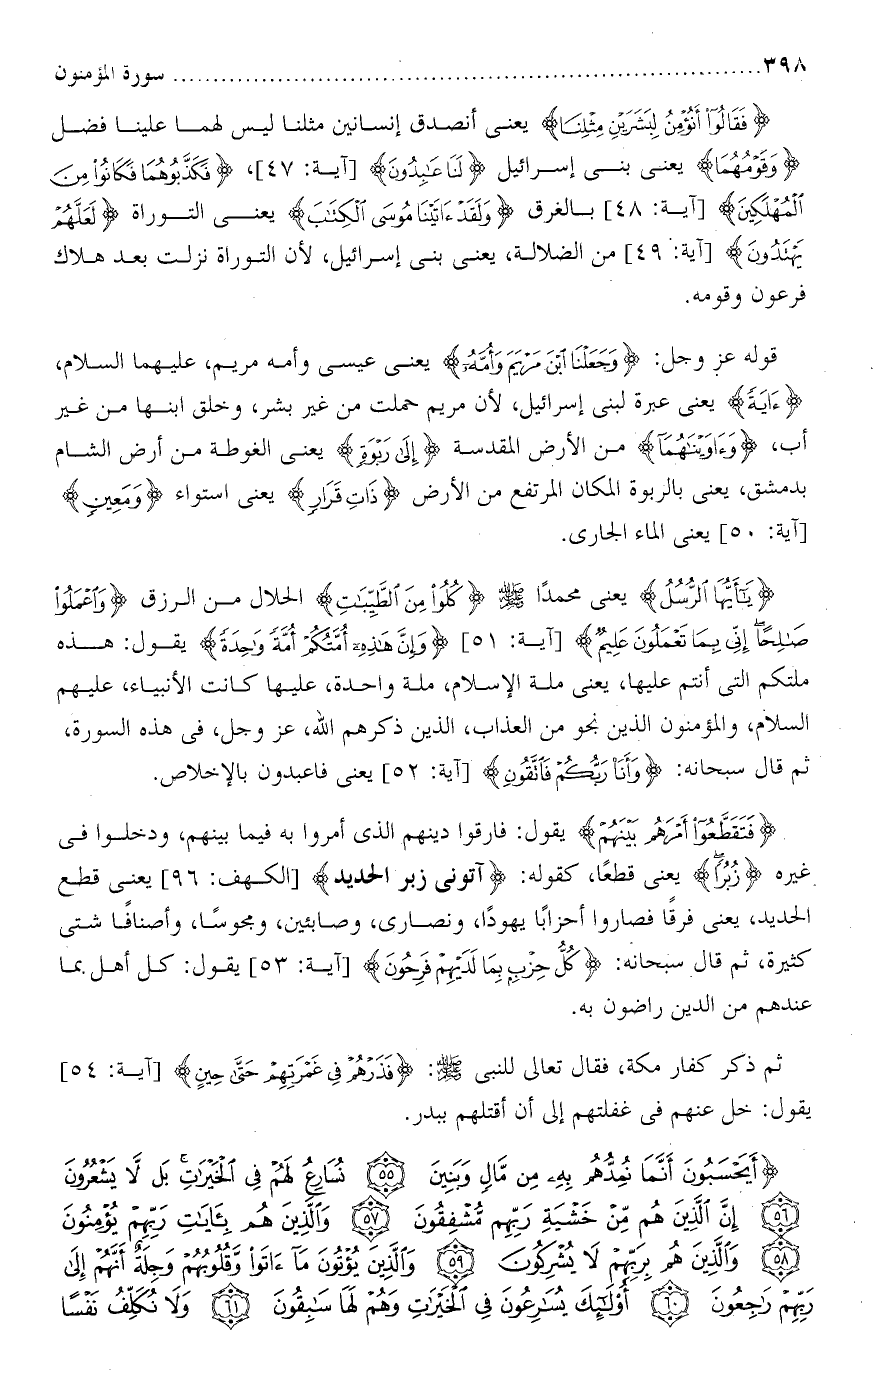 ٣٩٨ ........................................................................ سورة المؤمنون
﴿فَقَالُوٓا۟ أَنُؤْمِنُ لِبَشَرَيْنِ مِثْلِنَا﴾ يعنى أنصدق إنسانين مثلنا ليس لهما علينا فضل
﴿وَقَوْمُهُمَا﴾ يعنى بنى إسرائيل ﴿لَنَا عَٰبِدُونَ﴾ [آية: ٤٧]، ﴿فَكَذَّبُوهُمَا فَكَانُوا۟ مِنَ
ٱلْمُهْلَكِينَ﴾ [آية: ٤٨] بالغرق ﴿وَلَقَدْ ءَاتَيْنَا مُوسَى ٱلْكِتَٰبَ﴾ يعنى التوراة ﴿لَعَلَّهُمْ
يَهْتَدُونَ﴾ [آية: ٤٩] من الضلالة، يعنى بنى إسرائيل، لأن التوراة نزلت بعد هلاك
فرعون وقومه.
قوله عز وجل: ﴿وَجَعَلْنَا ٱبْنَ مَرْيَمَ وَأُمَّهُۥٓ﴾ يعنى عيسى وأمه مريم، عليهما السلام،
﴿ءَايَةً﴾ يعنى عبرة لبنى إسرائيل، لأن مريم حملت من غير بشر، وخلق ابنها من غير
أب، ﴿وَءَاوَيْنَٰهُمَآ﴾ من الأرض المقدسة ﴿إِلَىٰ رَبْوَةٍ﴾ يعنى الغوطة من أرض الشام
بدمشق، يعنى بالربوة المكان المرتفع من الأرض ﴿ذَاتِ قَرَارٍ﴾ يعنى استواء ﴿وَمَعِينٍ﴾
[آية: ٥٠] يعنى الماء الجارى.
﴿يَٰٓأَيُّهَا ٱلرُّسُلُ﴾ يعنى محمدًا ﷺ ﴿كُلُوا۟ مِنَ ٱلطَّيِّبَٰتِ﴾ الحلال من الرزق ﴿وَٱعْمَلُوا۟
صَٰلِحًا ۖ إِنِّى بِمَا تَعْمَلُونَ عَلِيمٌ﴾ [آية: ٥١] ﴿وَإِنَّ هَٰذِهِۦٓ أُمَّتُكُمْ أُمَّةً وَٰحِدَةً﴾ يقول: هذه
ملتكم التى أنتم عليها، يعنى ملة الإسلام، ملة واحدة، عليها كانت الأنبياء، عليهم
السلام، والمؤمنون الذين نجو من العذاب، الذين ذكرهم الله، عز وجل، فى هذه السورة،
ثم قال سبحانه: ﴿وَأَنَا۠ رَبُّكُمْ فَٱتَّقُونِ﴾ [آية: ٥٢] يعنى فاعبدون بالإخلاص.
﴿فَتَقَطَّعُوٓا۟ أَمْرَهُم بَيْنَهُمْ﴾ يقول: فارقوا دينهم الذى أمروا به فيما بينهم، ودخلوا فى
غيره ﴿زُبُرًا ۖ﴾ يعنى قطعًا، كقوله: ﴿آتونى زبر الحديد﴾ [الكهف: ٩٦] يعنى قطع
الحديد، يعنى فرقًا فصاروا أحزابًا يهودًا، ونصارى، وصابئين، ومجوسًا، وأصنافًا شتى
كثيرة، ثم قال سبحانه: ﴿كُلُّ حِزْبٍۭ بِمَا لَدَيْهِمْ فَرِحُونَ﴾ [آية: ٥٣] يقول: كل أهل بما
عندهم من الدين راضون به.
ثم ذكر كفار مكة، فقال تعالى للنبى ﷺ: ﴿فَذَرْهُمْ فِى غَمْرَتِهِمْ حَتَّىٰ حِينٍ﴾ [آية: ٥٤]
يقول: خل عنهم فى غفلتهم إلى أن أقتلهم ببدر.
﴿أَيَحْسَبُونَ أَنَّمَا نُمِدُّهُم بِهِۦ مِن مَّالٍ وَبَنِينَ ٥٥ نُسَارِعُ لَهُمْ فِى ٱلْخَيْرَٰتِ ۚ بَل لَّا يَشْعُرُونَ
٥٦ إِنَّ ٱلَّذِينَ هُم مِّنْ خَشْيَةِ رَبِّهِم مُّشْفِقُونَ ٥٧ وَٱلَّذِينَ هُم بِـَٔايَٰتِ رَبِّهِمْ يُؤْمِنُونَ
٥٨ وَٱلَّذِينَ هُم بِرَبِّهِمْ لَا يُشْرِكُونَ ٥٩ وَٱلَّذِينَ يُؤْتُونَ مَآ ءَاتَوا۟ وَّقُلُوبُهُمْ وَجِلَةٌ أَنَّهُمْ إِلَىٰ
رَبِّهِمْ رَٰجِعُونَ ٦٠ أُو۟لَٰٓئِكَ يُسَٰرِعُونَ فِى ٱلْخَيْرَٰتِ وَهُمْ لَهَا سَٰبِقُونَ ٦١ وَلَا نُكَلِّفُ نَفْسًا